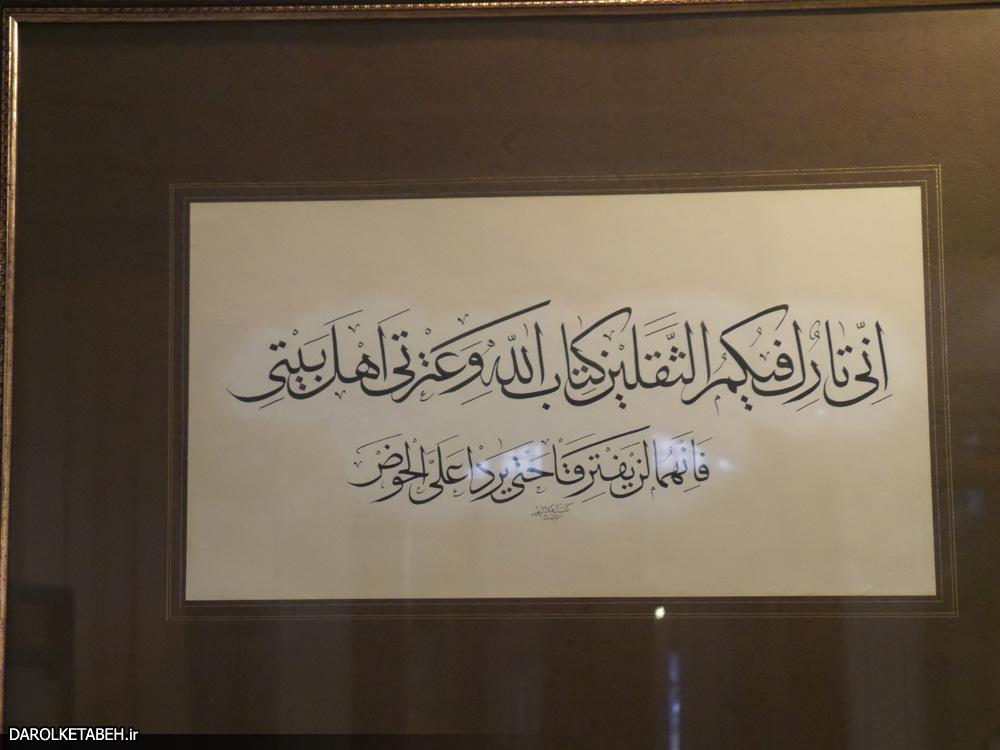 اِنّی تارِكٌ فیكُم الثَّقَلَینِ كِتابَ اللهِ وَعِترَتی اَهلَ بَیتی
فَاِنَّهُما لَن یَفتَرِقا حَتّی یَرِدا عَلَیَّ الحَوضَ
DAROLKETABEH.ir